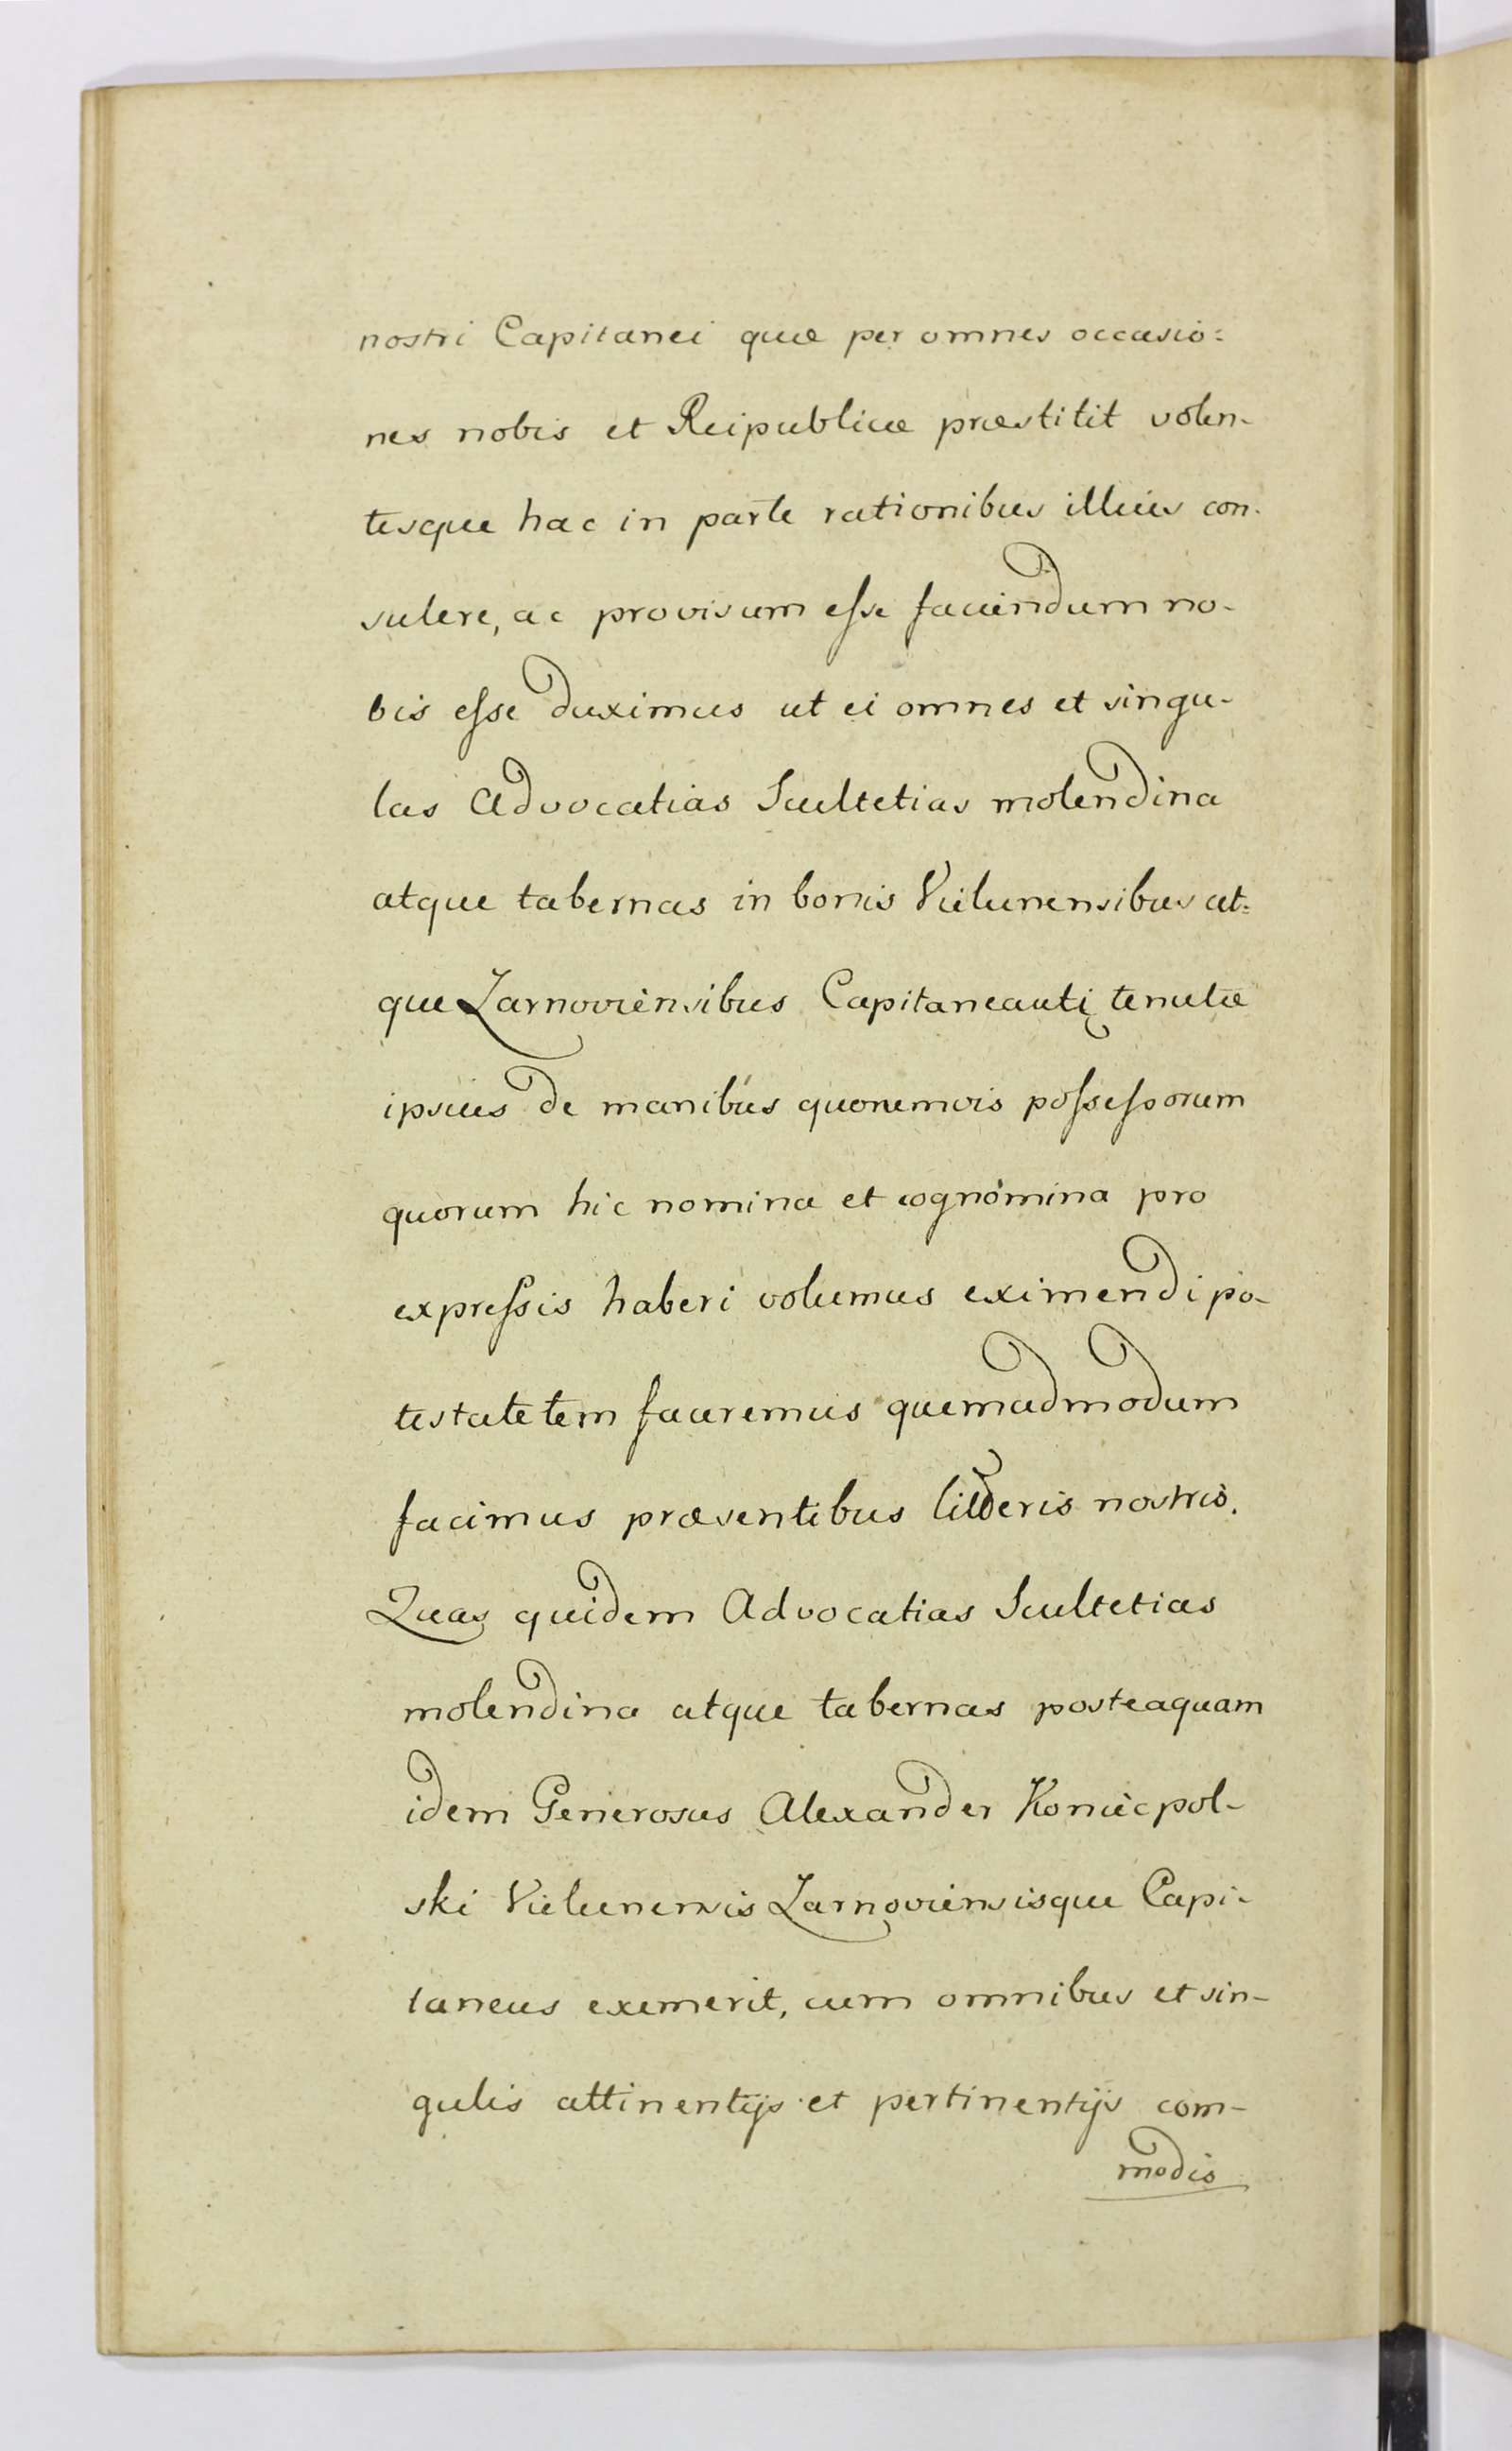 nostri Capitanei quæ per omnes occasio:
nes nobis et Reipublicæ præstitit volen-
tesque hac in parte rationibus illius con-
sulere, ac provisum esse faciendum no-
bis esse duximus ut ei omnes et singu-
las Advocatias Scultetias molendina
atque tabernas in bonis Vielunensibus at=
que Zarnoviensibus Capitaneauti tenutæ
ipsius de manibus quorumvis possessorum
quorum hic nomina et cognomina pro
expressis haberi volumus eximendi po-
testatetem faceremus quemadmodum
facimus præsentibus nostris.
Quas quidem Advocatias Scultetias
molendina atque tabernas posteaquam
idem Generosus Alexander Koniecpol-
ski Vielunensis Zarnoviensisque Capi-
taneus exemerit, cum omnibus et sin-
gulis attinentijs et pertinentijs com-
modis